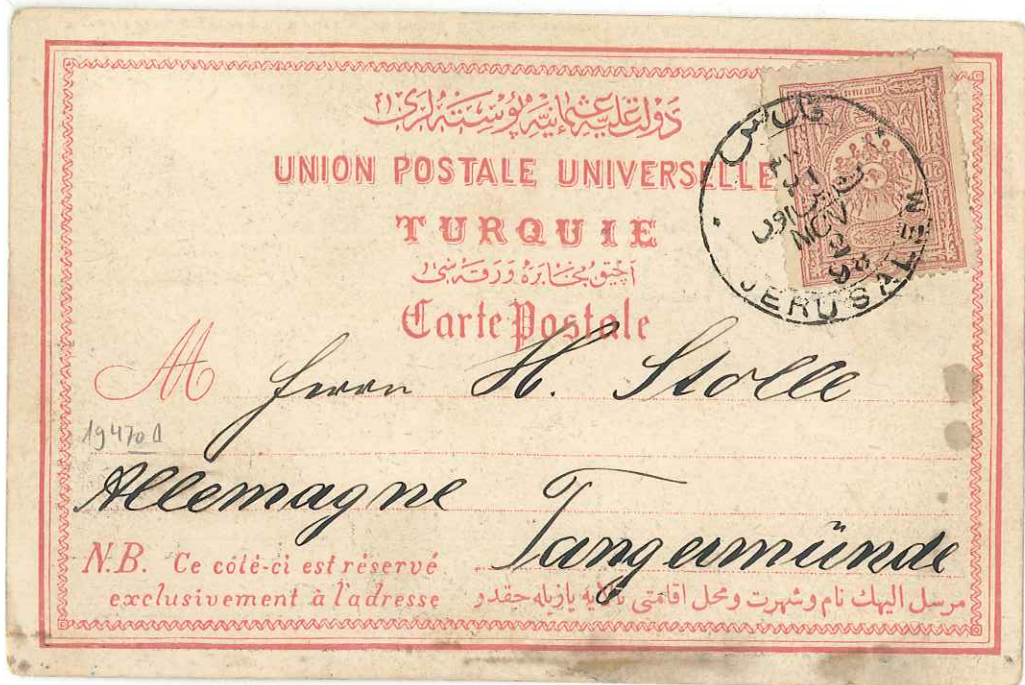 دولت علیهٔ عثمانیه پوسته‌لری
UNION POSTALE UNIVERSELLE
TURQUIE
آچیق مخابره ورقه‌سی
Carte Postale
JERUSALEM
NOV
M Herrn H. Stolle
19470
Allemagne Tangermünde
N.B. Ce côté-ci est réservé
exclusivement à l'adresse
مرسل الیهك نام و شهرت و محل اقامتی یازیله جقدر